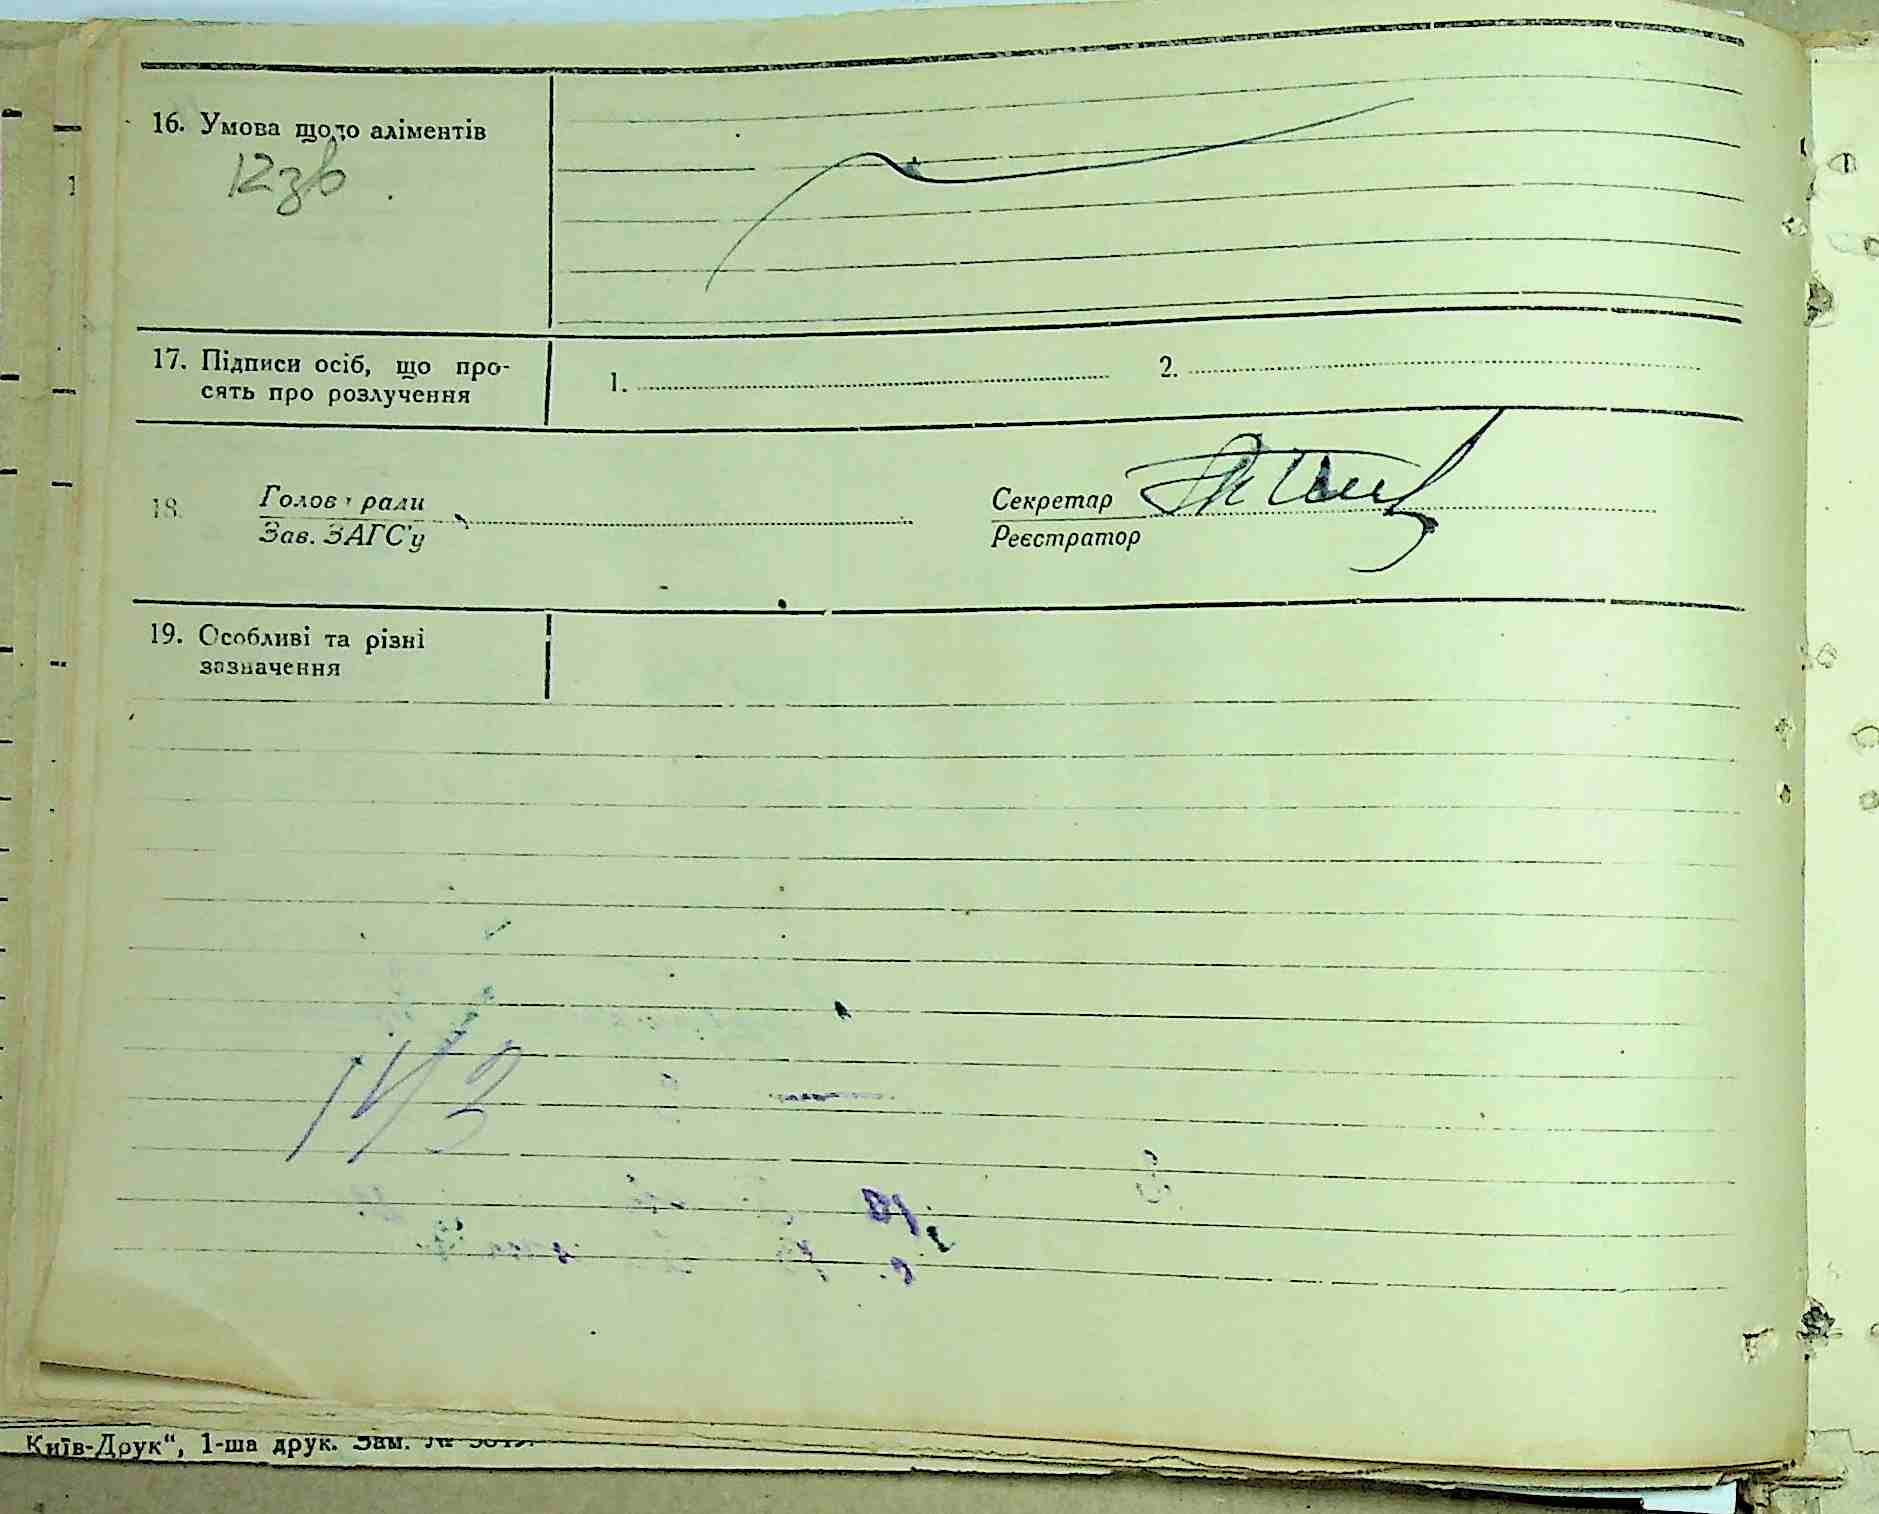 16. Умова щодо аліментів
12 зв.
17. Підписи осіб, що про-
сять про розлучення
1.
2.
18.
Голова ради
Зав. ЗАГС'у
Секретар
Реєстратор
19. Особливі та різні
зазначення
143
Київ-Друк“, 1-ша друк. Зам. №